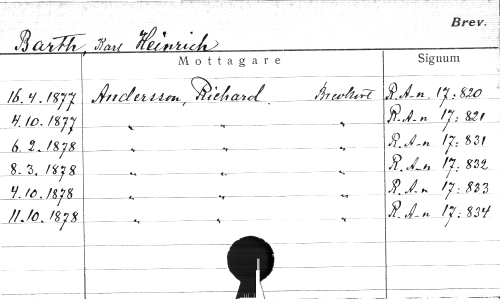 Brev.
Barth, Karl Heinrich
Mottagare Signum
16.4.1877 Andersson, Richard. Brevkort R.A-n. 17:820
4.10.1877 " " " R.A-n 17:821
6.2.1878 " " " R.A-n 17:831
8.3.1878 " " " R.A-n 17:832
4.10.1878 " " " R.A-n 17:833
11.10.1878 " " " R.A-n 17:834